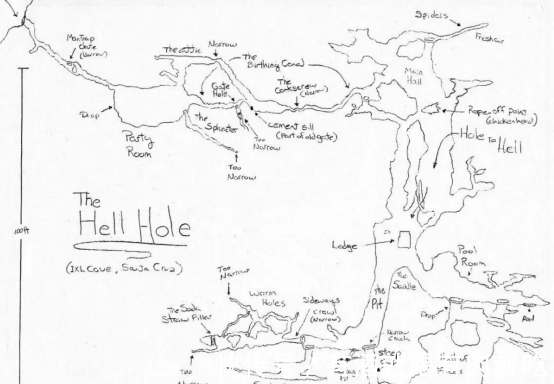 Spiders
Fresh air
Mantrap
Crete
(Narrow)
The attic
Narrow
The
Birthing Canal
Main
Hall
Gate
Hole
The
Corkscrew
(Narrow)
Rope-off point
(chickenhead)
Hole to
Hell
Drop
The
Splinter
cement sill
(Part of old gate)
Too
Narrow
Party
Room
Too
Narrow
The
Hell Hole
(IXL Cave, Santa Cruz)
100ft
Ledge
Pool
Room
The
Pit
The
Saddle
Too
Narrow
Worm
Holes
Sideways
Crawl
(Narrow)
The Soda
Straw Pillar
Drop
Pool
Narrow
Crack
steep
Too